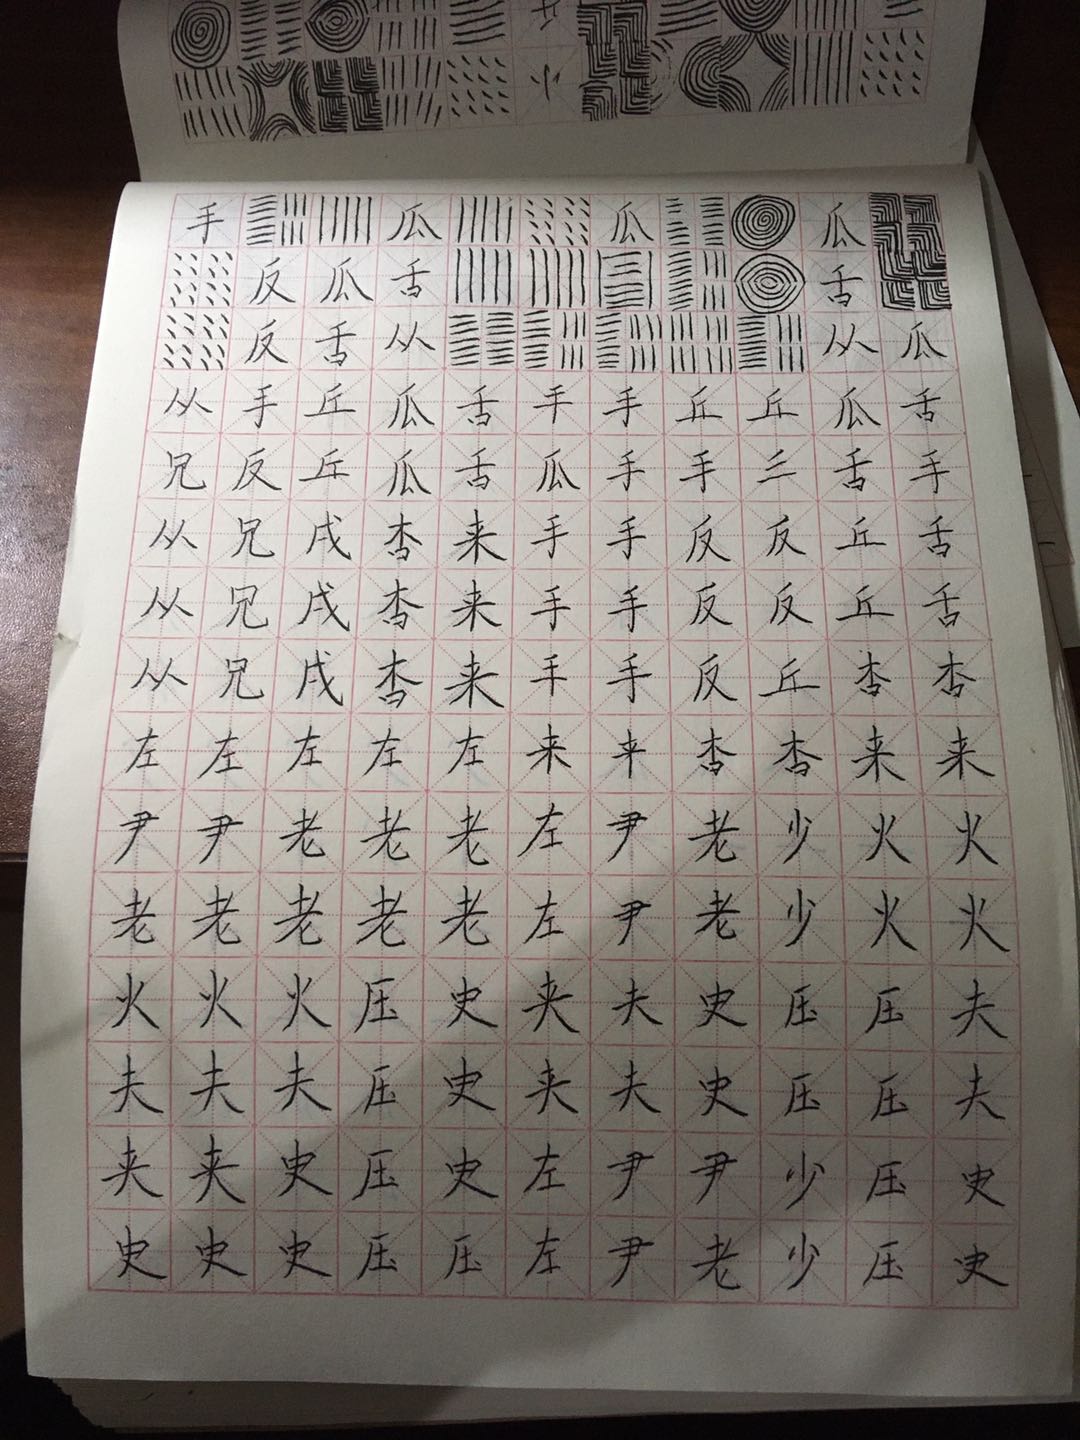 手 瓜 瓜 瓜
反 瓜 舌 舌
反 舌 从 从 瓜
从 手 丘 瓜 舌 手 手 丘 丘 瓜 舌
兄 反 丘 瓜 舌 瓜 手 手 三 舌 手
从 兄 戌 杏 来 手 手 反 反 丘 舌
从 兄 戌 杏 来 手 手 反 反 丘 舌
从 兄 戌 杏 来 手 手 反 丘 杏 杏
左 左 左 左 左 来 杏 杏 来 来
尹 尹 老 老 老 左 尹 老 少 火 火
老 老 老 老 老 左 尹 老 少 火 火
火 火 火 压 史 夹 夫 史 压 压 夫
夫 夫 夫 压 史 夹 夫 史 压 压 夫
夹 夹 史 压 史 左 尹 尹 少 压 史
史 史 史 压 压 左 尹 老 少 压 史